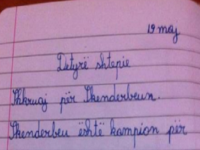 19 maj
Detyrë shtepie
Shkruaj për Skenderbeun.
Skenderbeu është kampion për